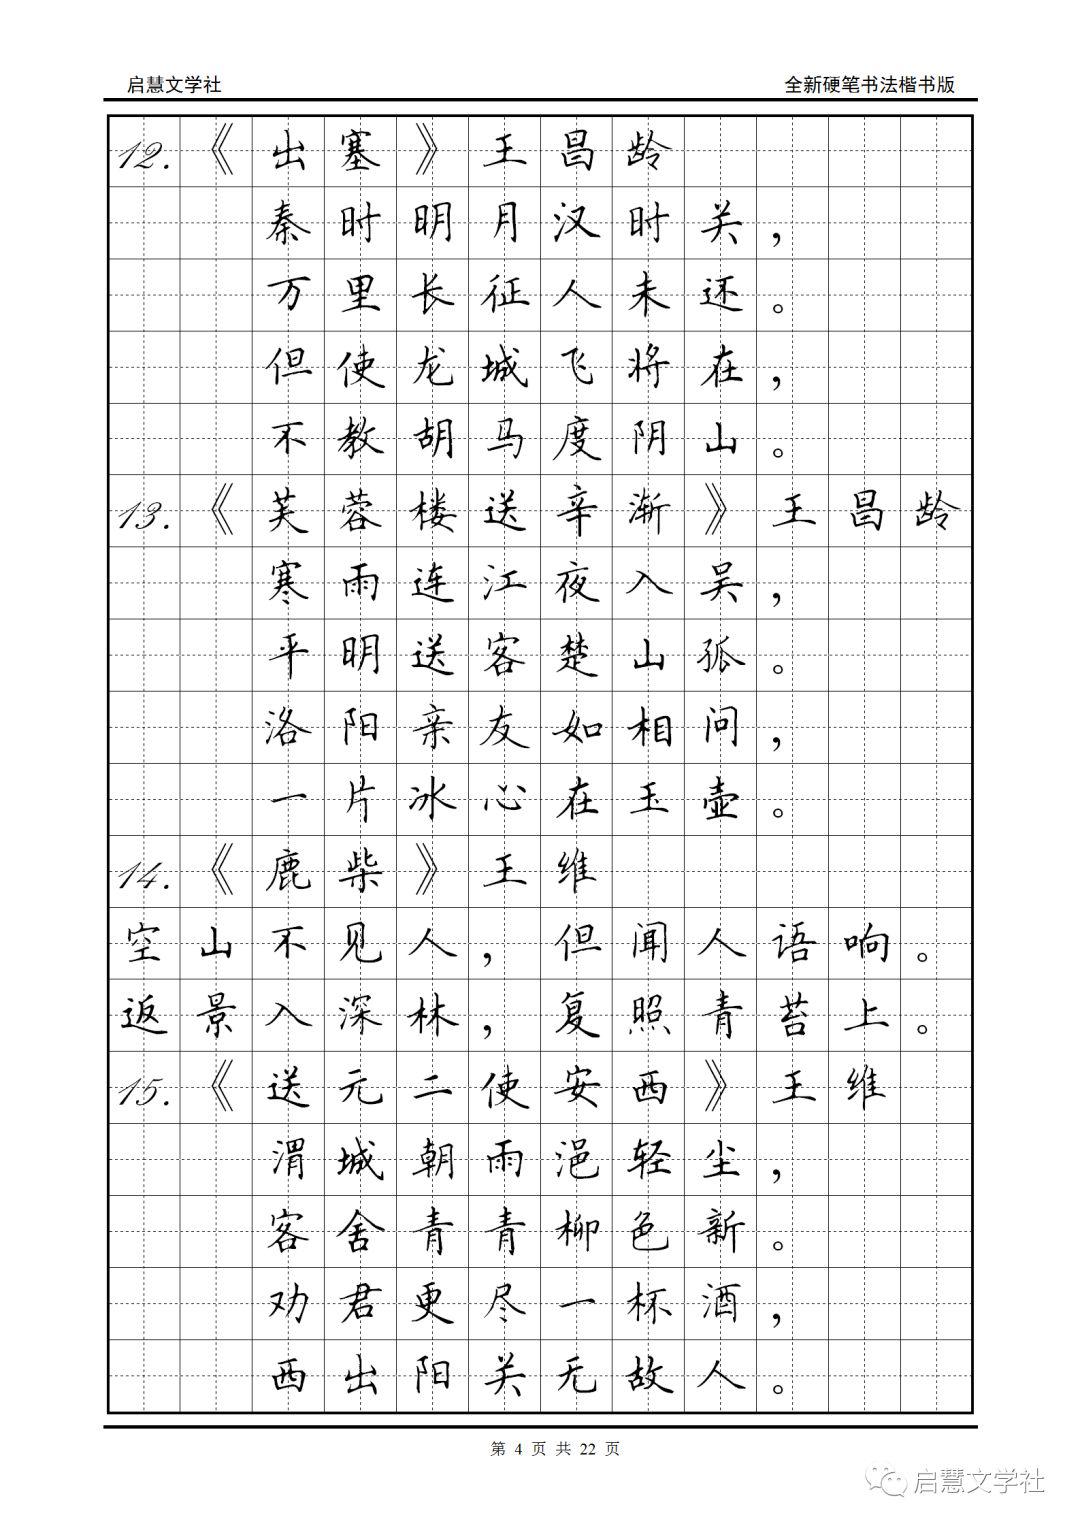 启慧文学社 全新硬笔书法楷书版
12.《出塞》王昌龄
秦时明月汉时关，
万里长征人未还。
但使龙城飞将在，
不教胡马度阴山。
13.《芙蓉楼送辛渐》王昌龄
寒雨连江夜入吴，
平明送客楚山孤。
洛阳亲友如相问，
一片冰心在玉壶。
14.《鹿柴》王维
空山不见人，但闻人语响。
返景入深林，复照青苔上。
15.《送元二使安西》王维
渭城朝雨浥轻尘，
客舍青青柳色新。
劝君更尽一杯酒，
西出阳关无故人。
第 4 页 共 22 页
启慧文学社